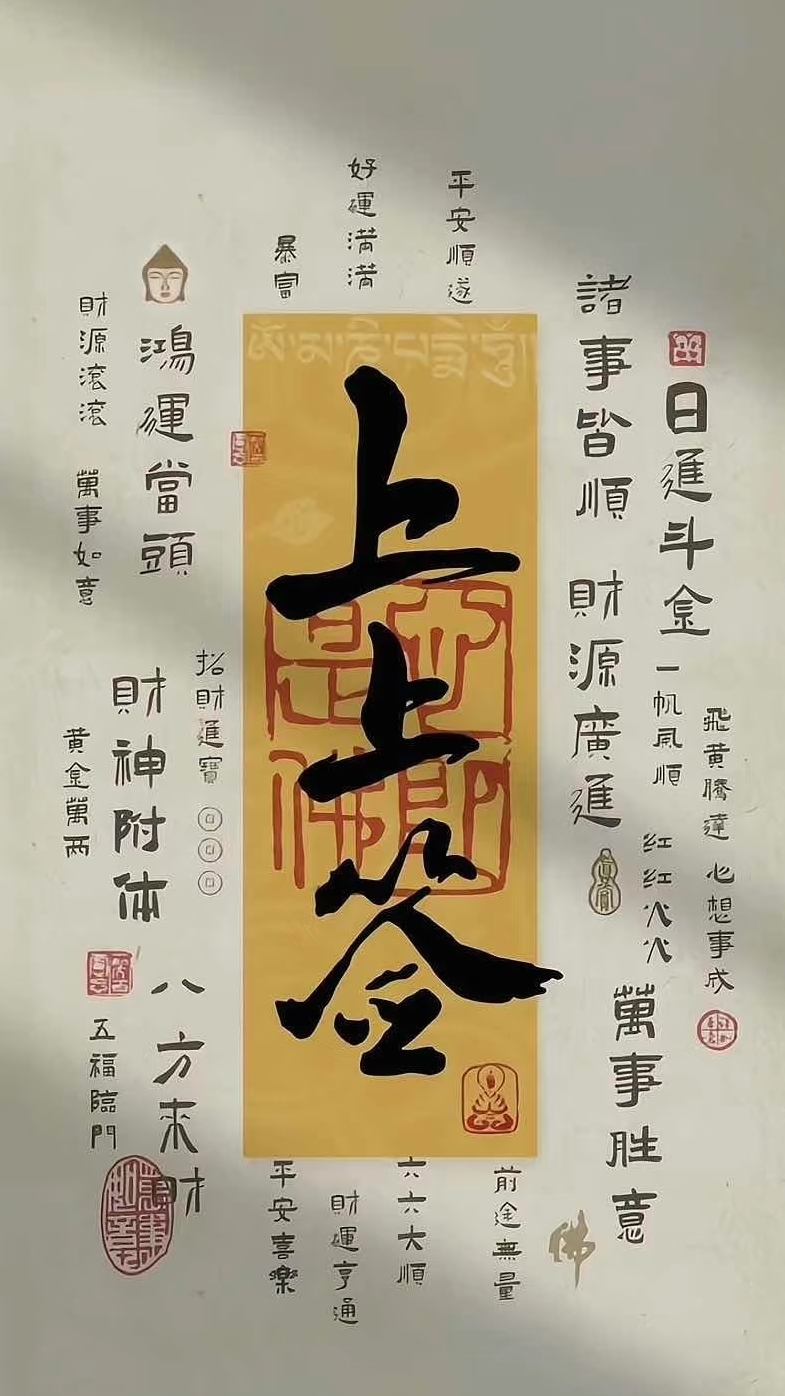 好運滿滿
平安順遂
暴富
諸事皆順
財源廣進
日進斗金
一帆風順
飛黄騰達
心想事成
红红火火
萬事胜意
鴻運當頭
財源滾滾
萬事如意
招財進寶
財神附体
黄金萬两
八方来財
五福臨門
ༀ་མ་ཎི་པདྨེ་ཧཱུྃ
上上签
心即是佛
平安喜樂
財運亨通
六六大順
前途無量
佛